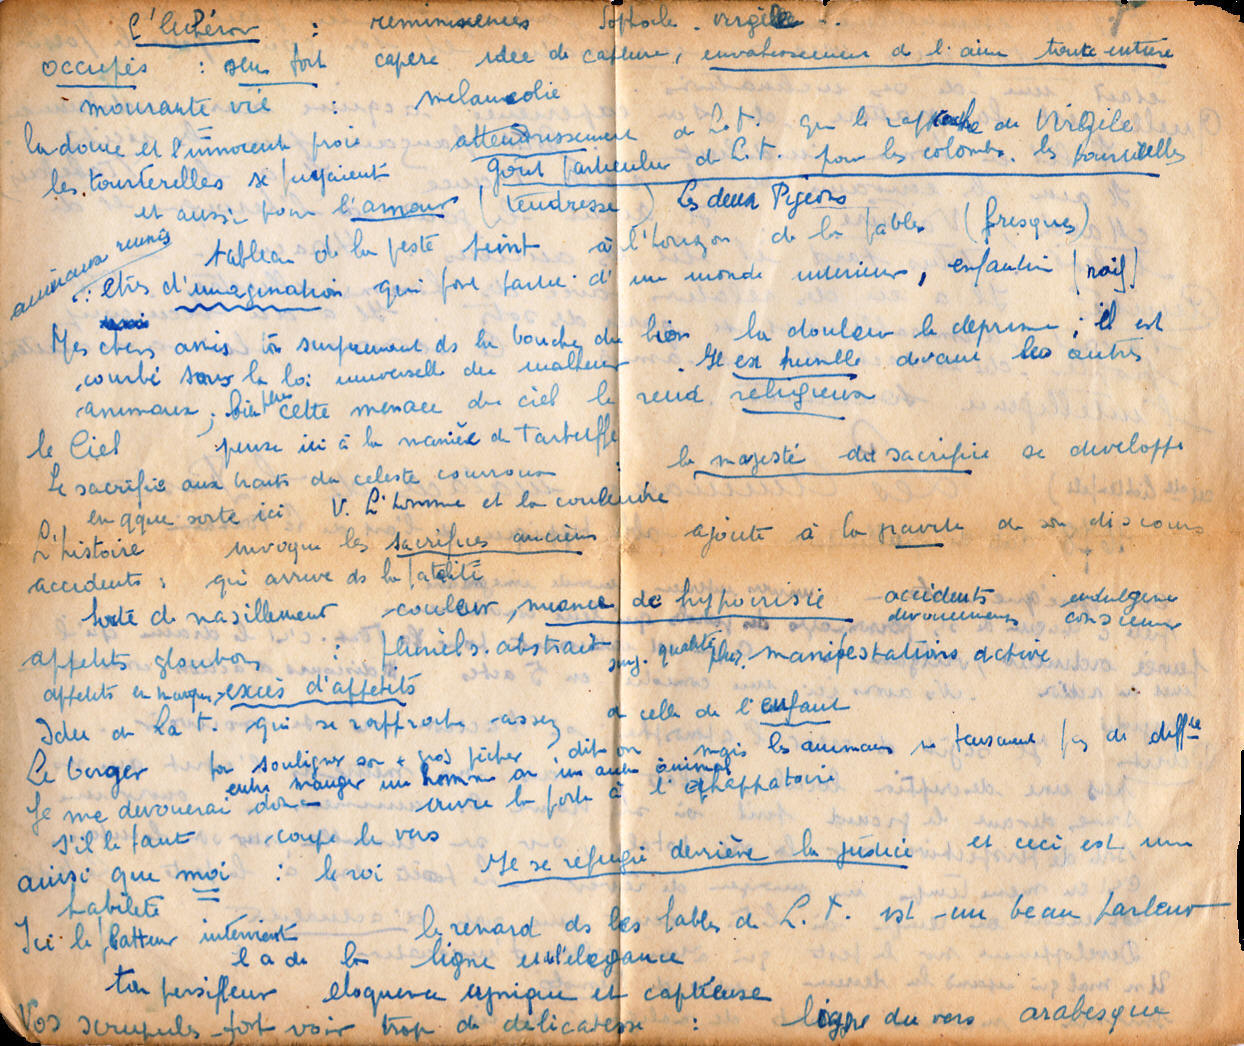 L'Achéron : réminiscences Sophocle. Virgile.
occupés : sens fort capere idée de capture, envahissement de l'âme toute entière
mourante vie : mélancolie
la douce et l'innocente proie attendrissement de L. F. qui le rapproche de Virgile
les tourterelles se fuyaient goût particulier de L. F. pour les colombes. les tourterelles
et aussi pour l'amour (tendresse) Les deux Pigeons
tableau de la peste teint à l'horizon de la fable (fresques)
animaux réunis
: êtres d'imagination qui font partie d'un monde intérieur, enfantin [naïf]
Mes chers amis surprenant ds la bouche du lion la douleur le déprime, il est
courbé sous la loi universelle du malheur. Il est humble devant les autres
animaux ; bien plus cette menace du ciel le rend religieux
le Ciel pense ici à la manière de Tartuffe
Se sacrifie aux traits du céleste courroux : la majesté du sacrifice se développe
en qque sorte ici V. L'homme et la couleuvre
L'histoire invoque les sacrifices anciens ajoute à la gravité de son discours
accidents : qui arrive ds la fatalité
sorte de nasillement couleur, nuance de hypocrisie accidents indulgence
dévouements conscience
appétits gloutons : pluriels. abstrait sing. qualité plur. manifestations active
appétits en marque excès d'appétits
Idée de La F. qui se rapproche assez de celle de l'enfant
Le berger pr souligner son + gros pêcher, dit-on mais les animaux ne pensent pas de diffce
entre manger un homme ou un autre animal
Je me dévouerai donc ouvre la porte à l'échappatoire
s'il le faut coupe le vers
ainsi que moi : le roi Il se réfugie derrière la justice et ceci est une
habileté
Ici le flatteur intervient le renard ds les fables de L. F. est un beau parleur
il a de la ligne et de l'élégance
ton persifleur éloquence cynique et captieuse
Vos scrupules font voir trop de délicatesse : ligne du vers arabesque